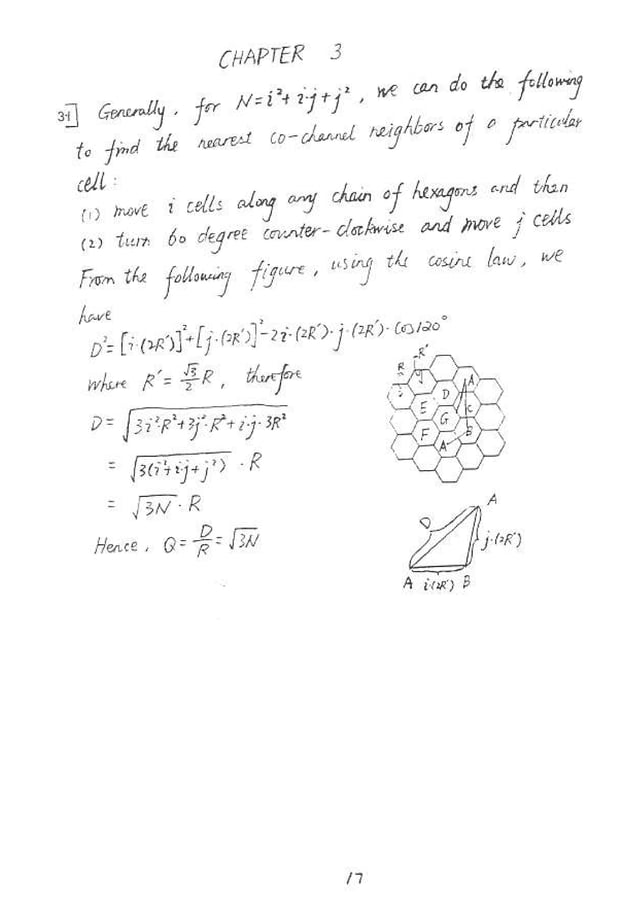 CHAPTER 3
3.1 Generally, for N = i² + i·j + j², we can do the following
to find the nearest co-channel neighbors of a particular
cell:
(1) move i cells along any chain of hexagons and then
(2) turn 60 degree counter-clockwise and move j cells
From the following figure, using the cosine law, we
have
D² = [i·(2R')]² + [j·(2R')]² - 2i·(2R')·j·(2R')·cos120°
where R' = √3/2 R, therefore
D = √(3i²·R² + 3j²·R² + i·j·3R²)
= √(3(i² + ij + j²)) · R
= √3N · R
Hence, Q = D/R = √3N
R R'
A
D
E C
G
F B
A
A
D
j·(2R')
A i·(2R') B
17